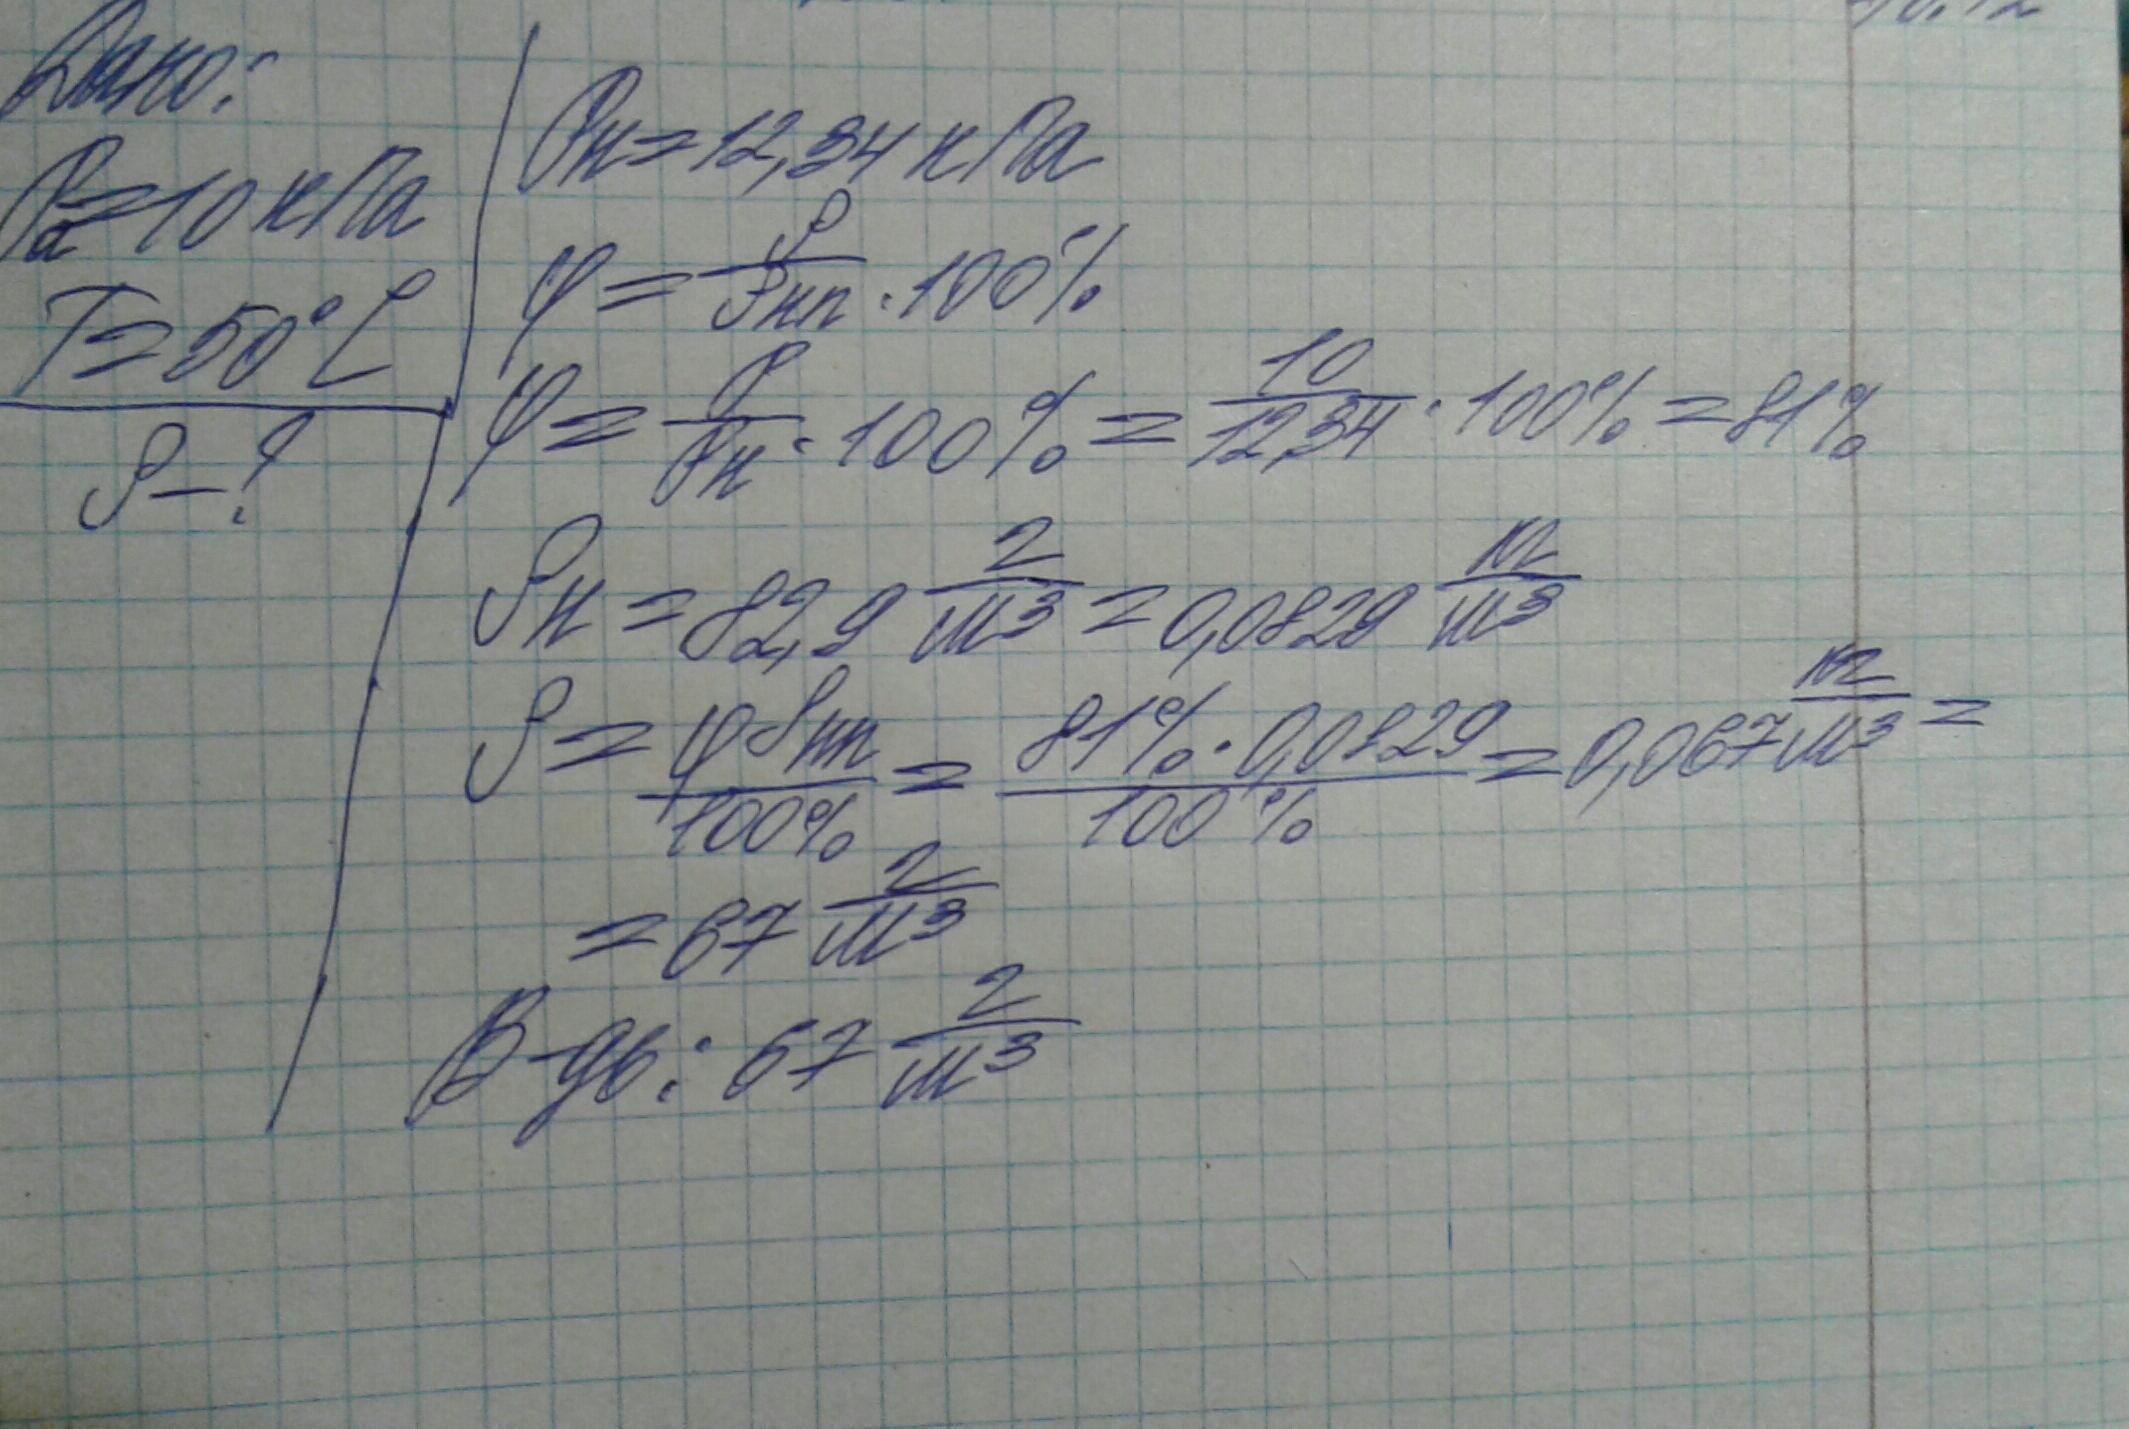 Дано:
Pа = 10 кПа
T = 50°C
ρ – ?
Pн = 12,34 кПа
φ = ρ/ρнп · 100%
φ = P/Pн · 100% = 10/12,34 · 100% = 81%
ρн = 82,9 г/м³ = 0,0829 кг/м³
ρ = φρнп/100% = 81% · 0,0829/100% = 0,067 кг/м³ =
= 67 г/м³
В-дь: 67 г/м³